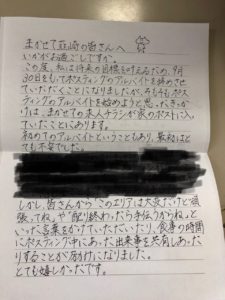 まかせて韮崎の皆さんへ
いかがお過ごしですか。
この度、私は将来の目標を叶えるため、9月
30日をもってポスティングのアルバイトを辞めさせ
ていただくことになりましたが、そもそもポス
ティングのアルバイトを始めようと思ったきっか
けは、まかせての求人チラシが家のポストに入っ
ていたことにあります。
初めてのアルバイトということもあり、最初はと
ても不安でした。
しかし、皆さんから「このエリアは大変だけど頑
張ってね」や「配り終わったら手伝うからね」と
いった言葉をかけていただいたり、食事の時間
にポスティング中にあった出来事を共有しあった
りすることが励みになりました。
とても嬉しかったです。